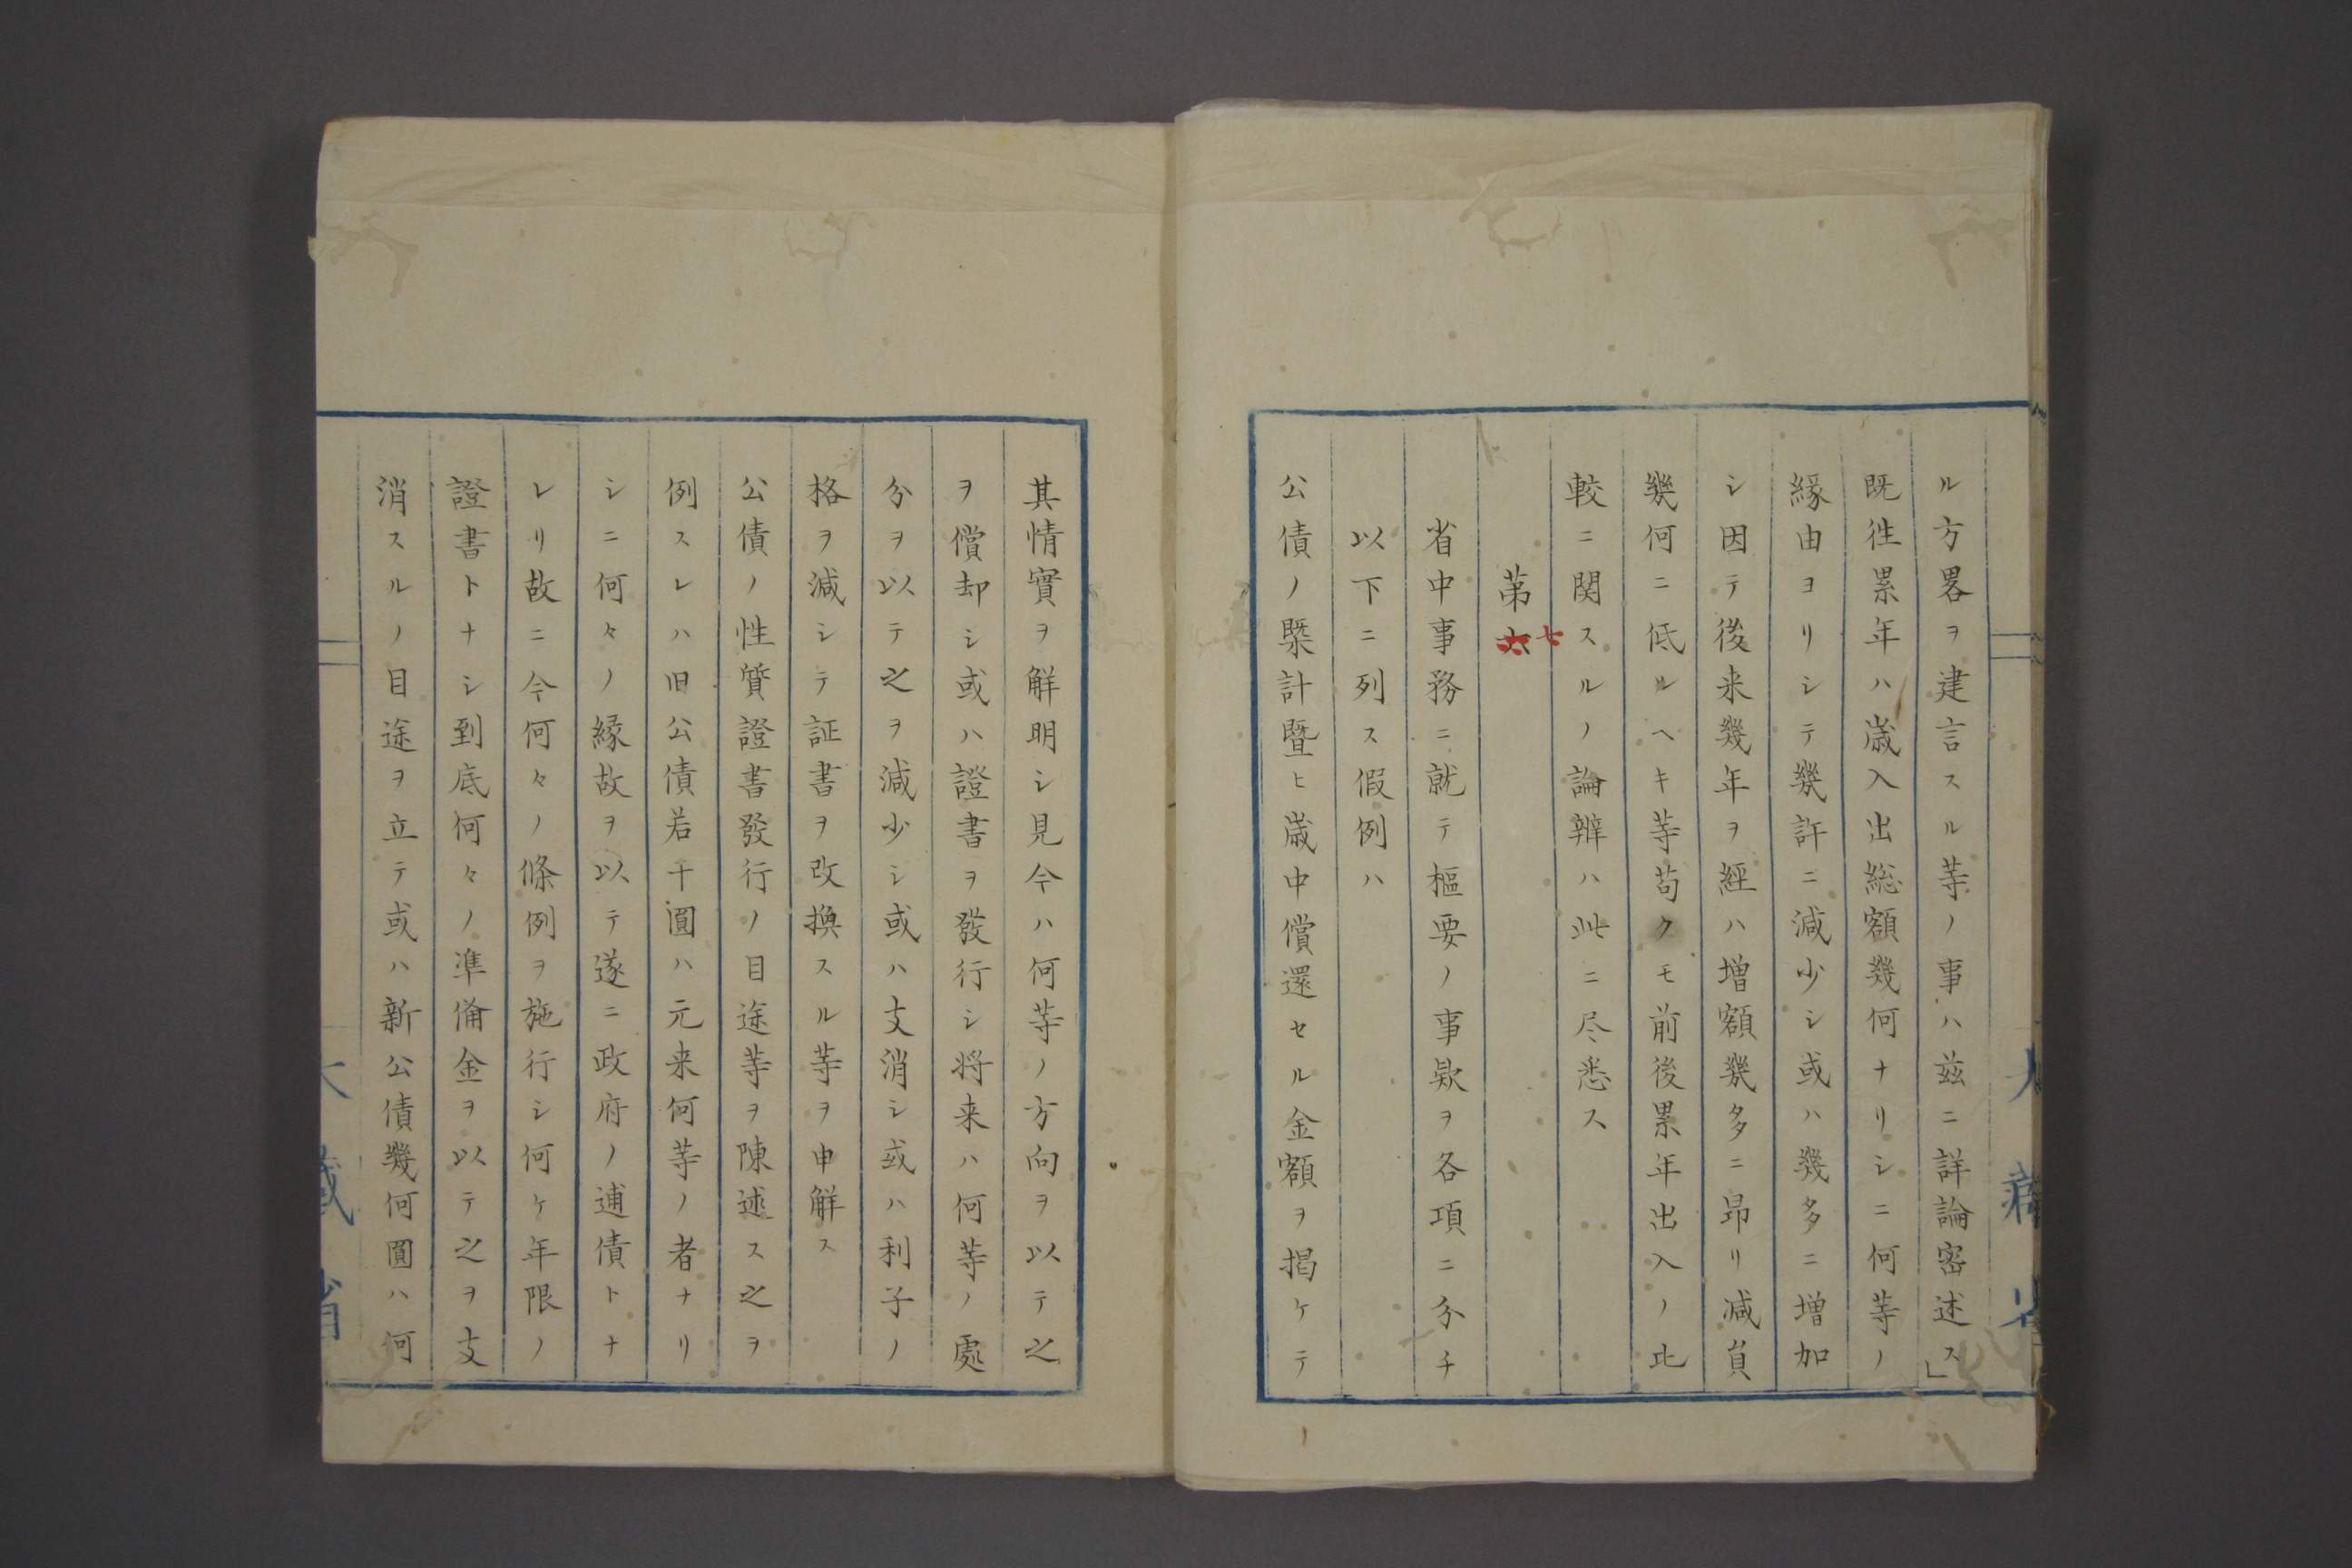 ル方畧ヲ建言スル等ノ事ハ茲ニ詳論密述ス」
既徃累年ハ歳入出総額幾何ナリシニ何等ノ
縁由ヨリシテ幾許ニ減少シ或ハ幾多ニ増加
シ因テ後来幾年ヲ經ハ増額幾多ニ昂リ減負
幾何ニ低ルヘキ等苟クモ前後累年出入ノ比
較ニ関スルノ論辨ハ此ニ尽悉ス
第六七
省中事務ニ就テ樞要ノ事欵ヲ各項ニ分チ
以下ニ列ス假例ハ
公債ノ槩計曁ヒ歳中償還セル金額ヲ掲ケテ
大藏省
其情實ヲ解明シ見今ハ何等ノ方向ヲ以テ之
ヲ償却シ或ハ證書ヲ發行シ将来ハ何等ノ處
分ヲ以テ之ヲ減少シ或ハ支消シ或ハ利子ノ
格ヲ減シテ証書ヲ改換スル等ヲ申解ス
公債ノ性質證書發行ノ目途等ヲ陳述ス之ヲ
例スレハ旧公債若干圓ハ元来何等ノ者ナリ
シニ何々ノ縁故ヲ以テ遂ニ政府ノ逋債トナ
レリ故ニ今何々ノ條例ヲ施行シ何ケ年限ノ
證書トナシ到底何々ノ準備金ヲ以テ之ヲ支
消スルノ目途ヲ立テ或ハ新公債幾何圓ハ何
大藏省